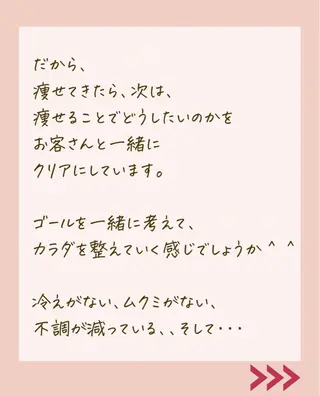 だから、
痩せてきたら、次は、
痩せることでどうしたいのかを
お客さんと一緒に
クリアにしています。
ゴールを一緒に考えて、
カラダを整えていく感じでしょうか^ ^
冷えがない、ムクミがない、
不調が減っている、、そして・・・